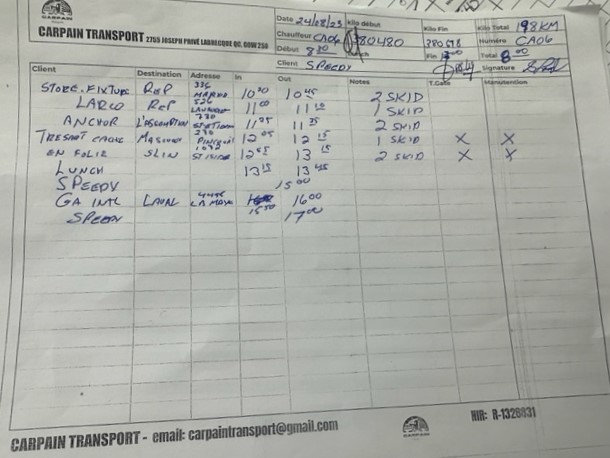 CARPAIN
CARPAIN TRANSPORT 2755 JOSEPH PRIVÉ LABRECQUE QC, GOW 2S0
Date 24/08/23 Kilo début Kilo Fin Kilo Total 198 KM
Chauffeur CA06 380480 380678 Numéro CA06
Début 8 30 Lunch Fin Total 8.00
Client SPEEDY Signature
Client Destination Adresse In Out Notes T.Gate Manutention
STORE.FIXTURE REP 10 20 10 45 2 SKID
LARCO REP 526 11 00 11 10 1 SKID
ANCHOR L'ASSOMPTION 11 25 11 35 2 SKID
12 05 12 15 1 SKID X X
EN FOLIE 12 55 13 15 2 SKID X X
LUNCH 13 15 13 45
SPEEDY 15 00
GA INTL LAVAL 15 50 16 00
SPEEDY 17 00
CARPAIN TRANSPORT - email: carpaintransport@gmail.com
NIR: R-1328831